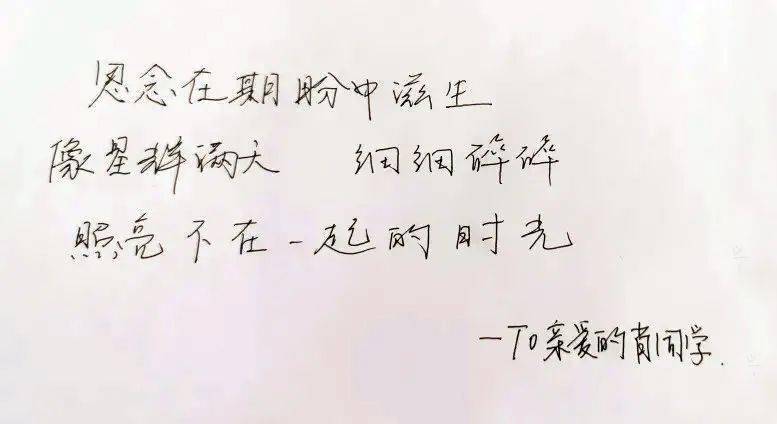 思念在期盼中滋生
像星群满天 细细碎碎
照亮不在一起的时光
—To 亲爱的肖同学.